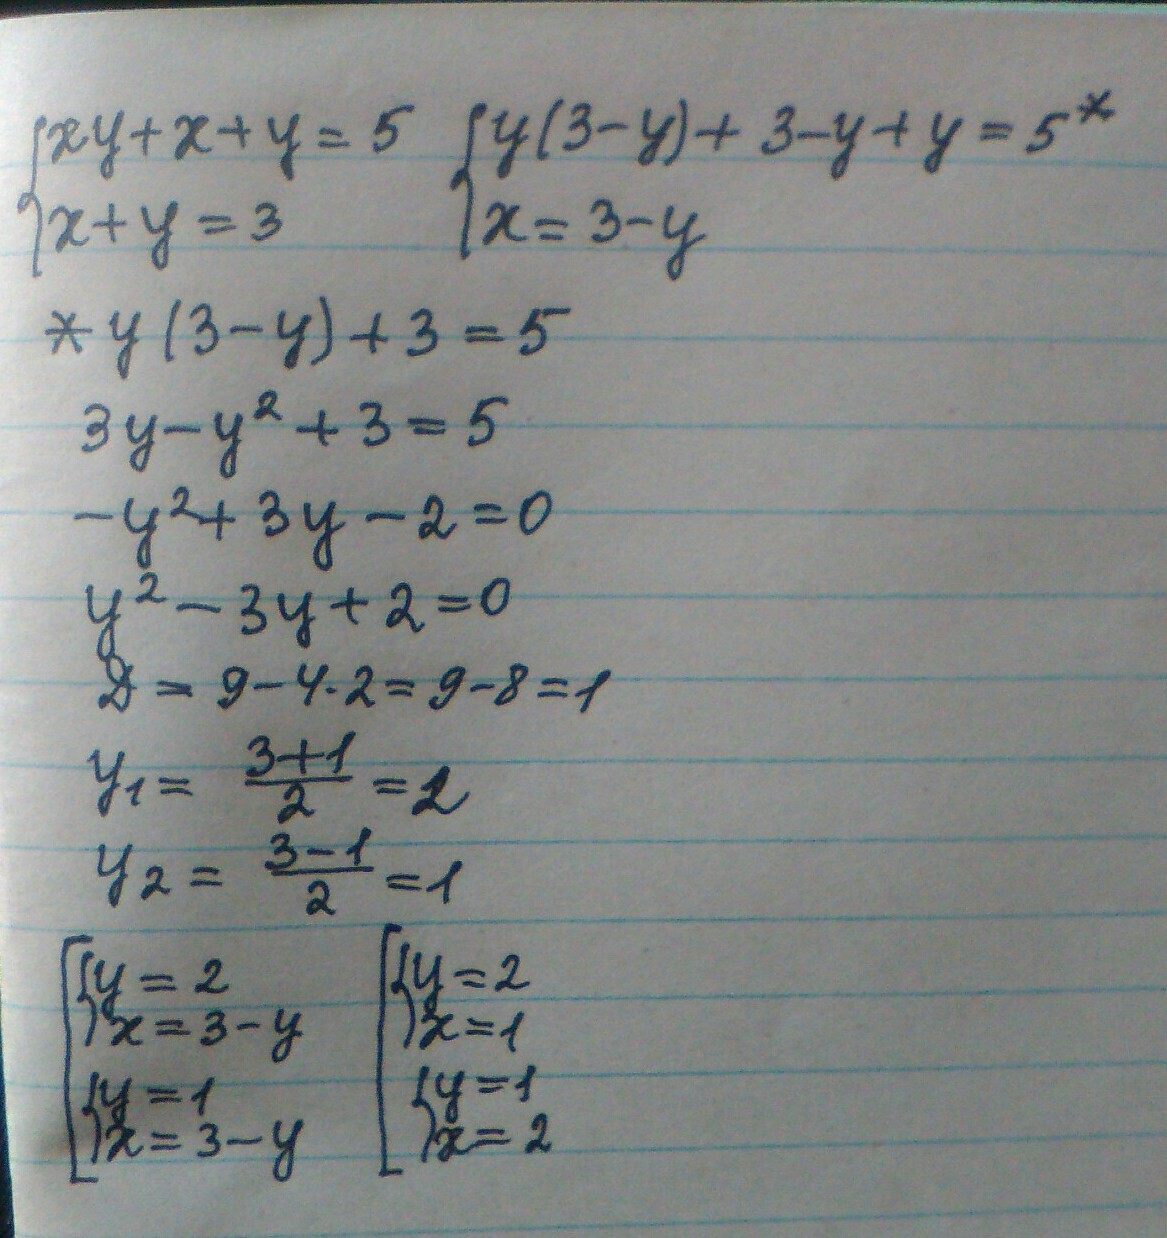 {xy+x+y=5 {y(3-y)+3-y+y=5*
x+y=3 x=3-y
* y(3-y)+3=5
3y-y²+3=5
-y²+3y-2=0
y²-3y+2=0
D=9-4·2=9-8=1
y₁=(3+1)/2=2
y₂=(3-1)/2=1
[{y=2 [{y=2
x=3-y x=1
{y=1 {y=1
x=3-y x=2